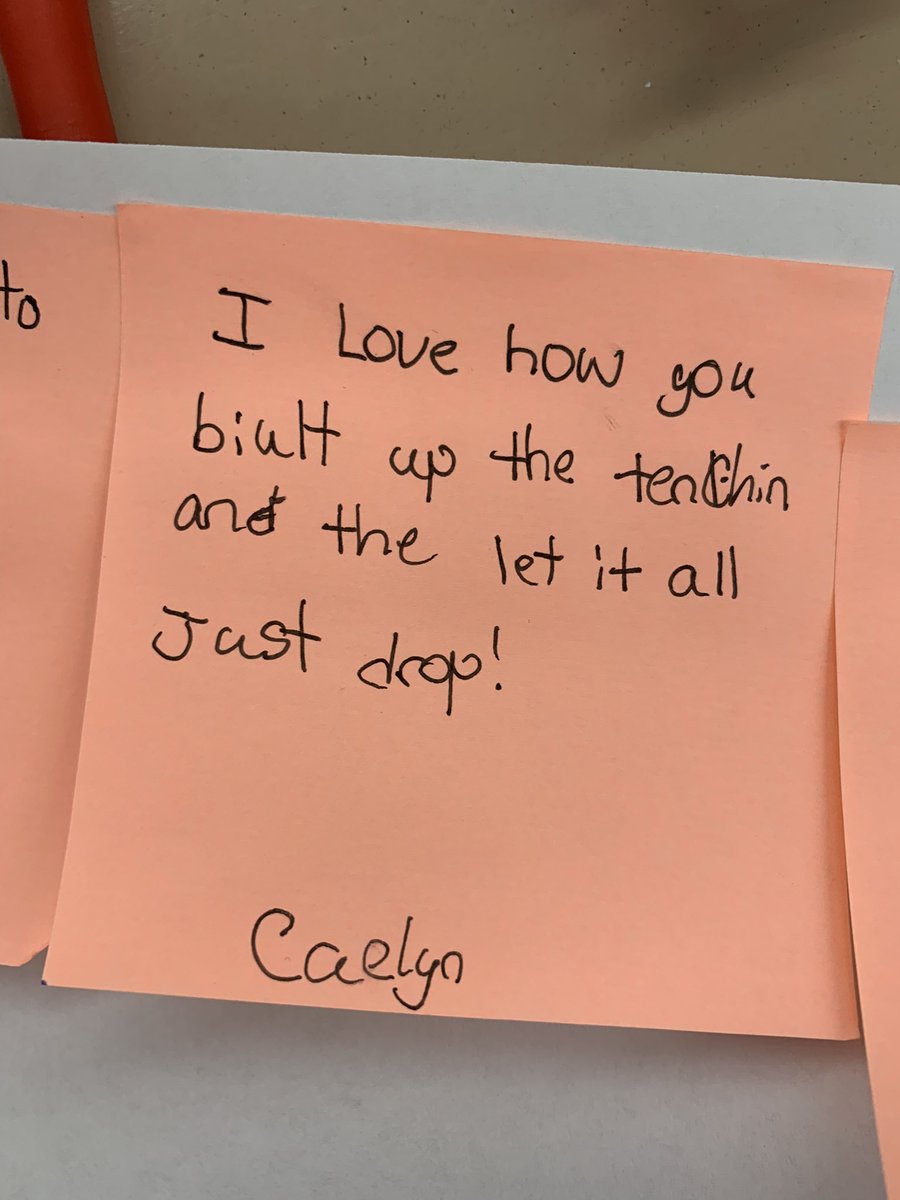 to
I Love how you
biult up the tenchin
and the let it all
Just drop!
Caelyn